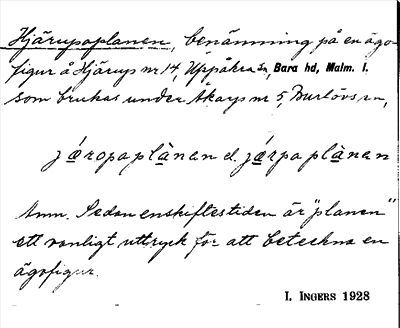 Hjärupaplanen, benämning på en ägo-
figur å Hjärups nr 14, Uppåkra sn, Bara hd, Malm. l.
som brukas under Åkarps nr 5, Burlövs sn,
jǽropaplànan el. jǽrpaplànan
Anm. Sedan enskiftestiden är "planen"
ett vanligt uttryck för att beteckna en
ägofigur.
I. INGERS 1928